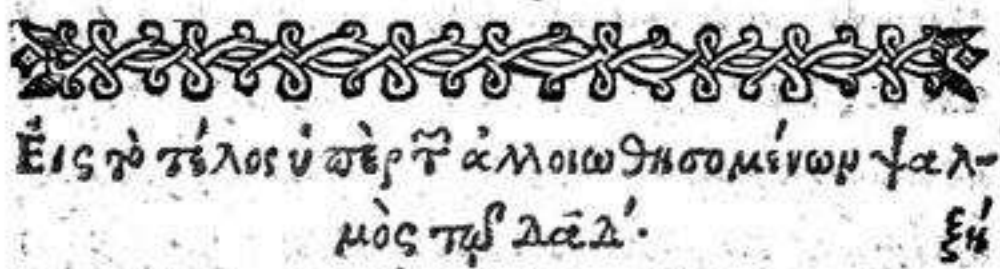 Εἰς τὸ τέλος ὑπὲρ τ͂ ἀλλοιωθησομένων ψαλ-
μὸς τῷ Δᾱδ́· ξή